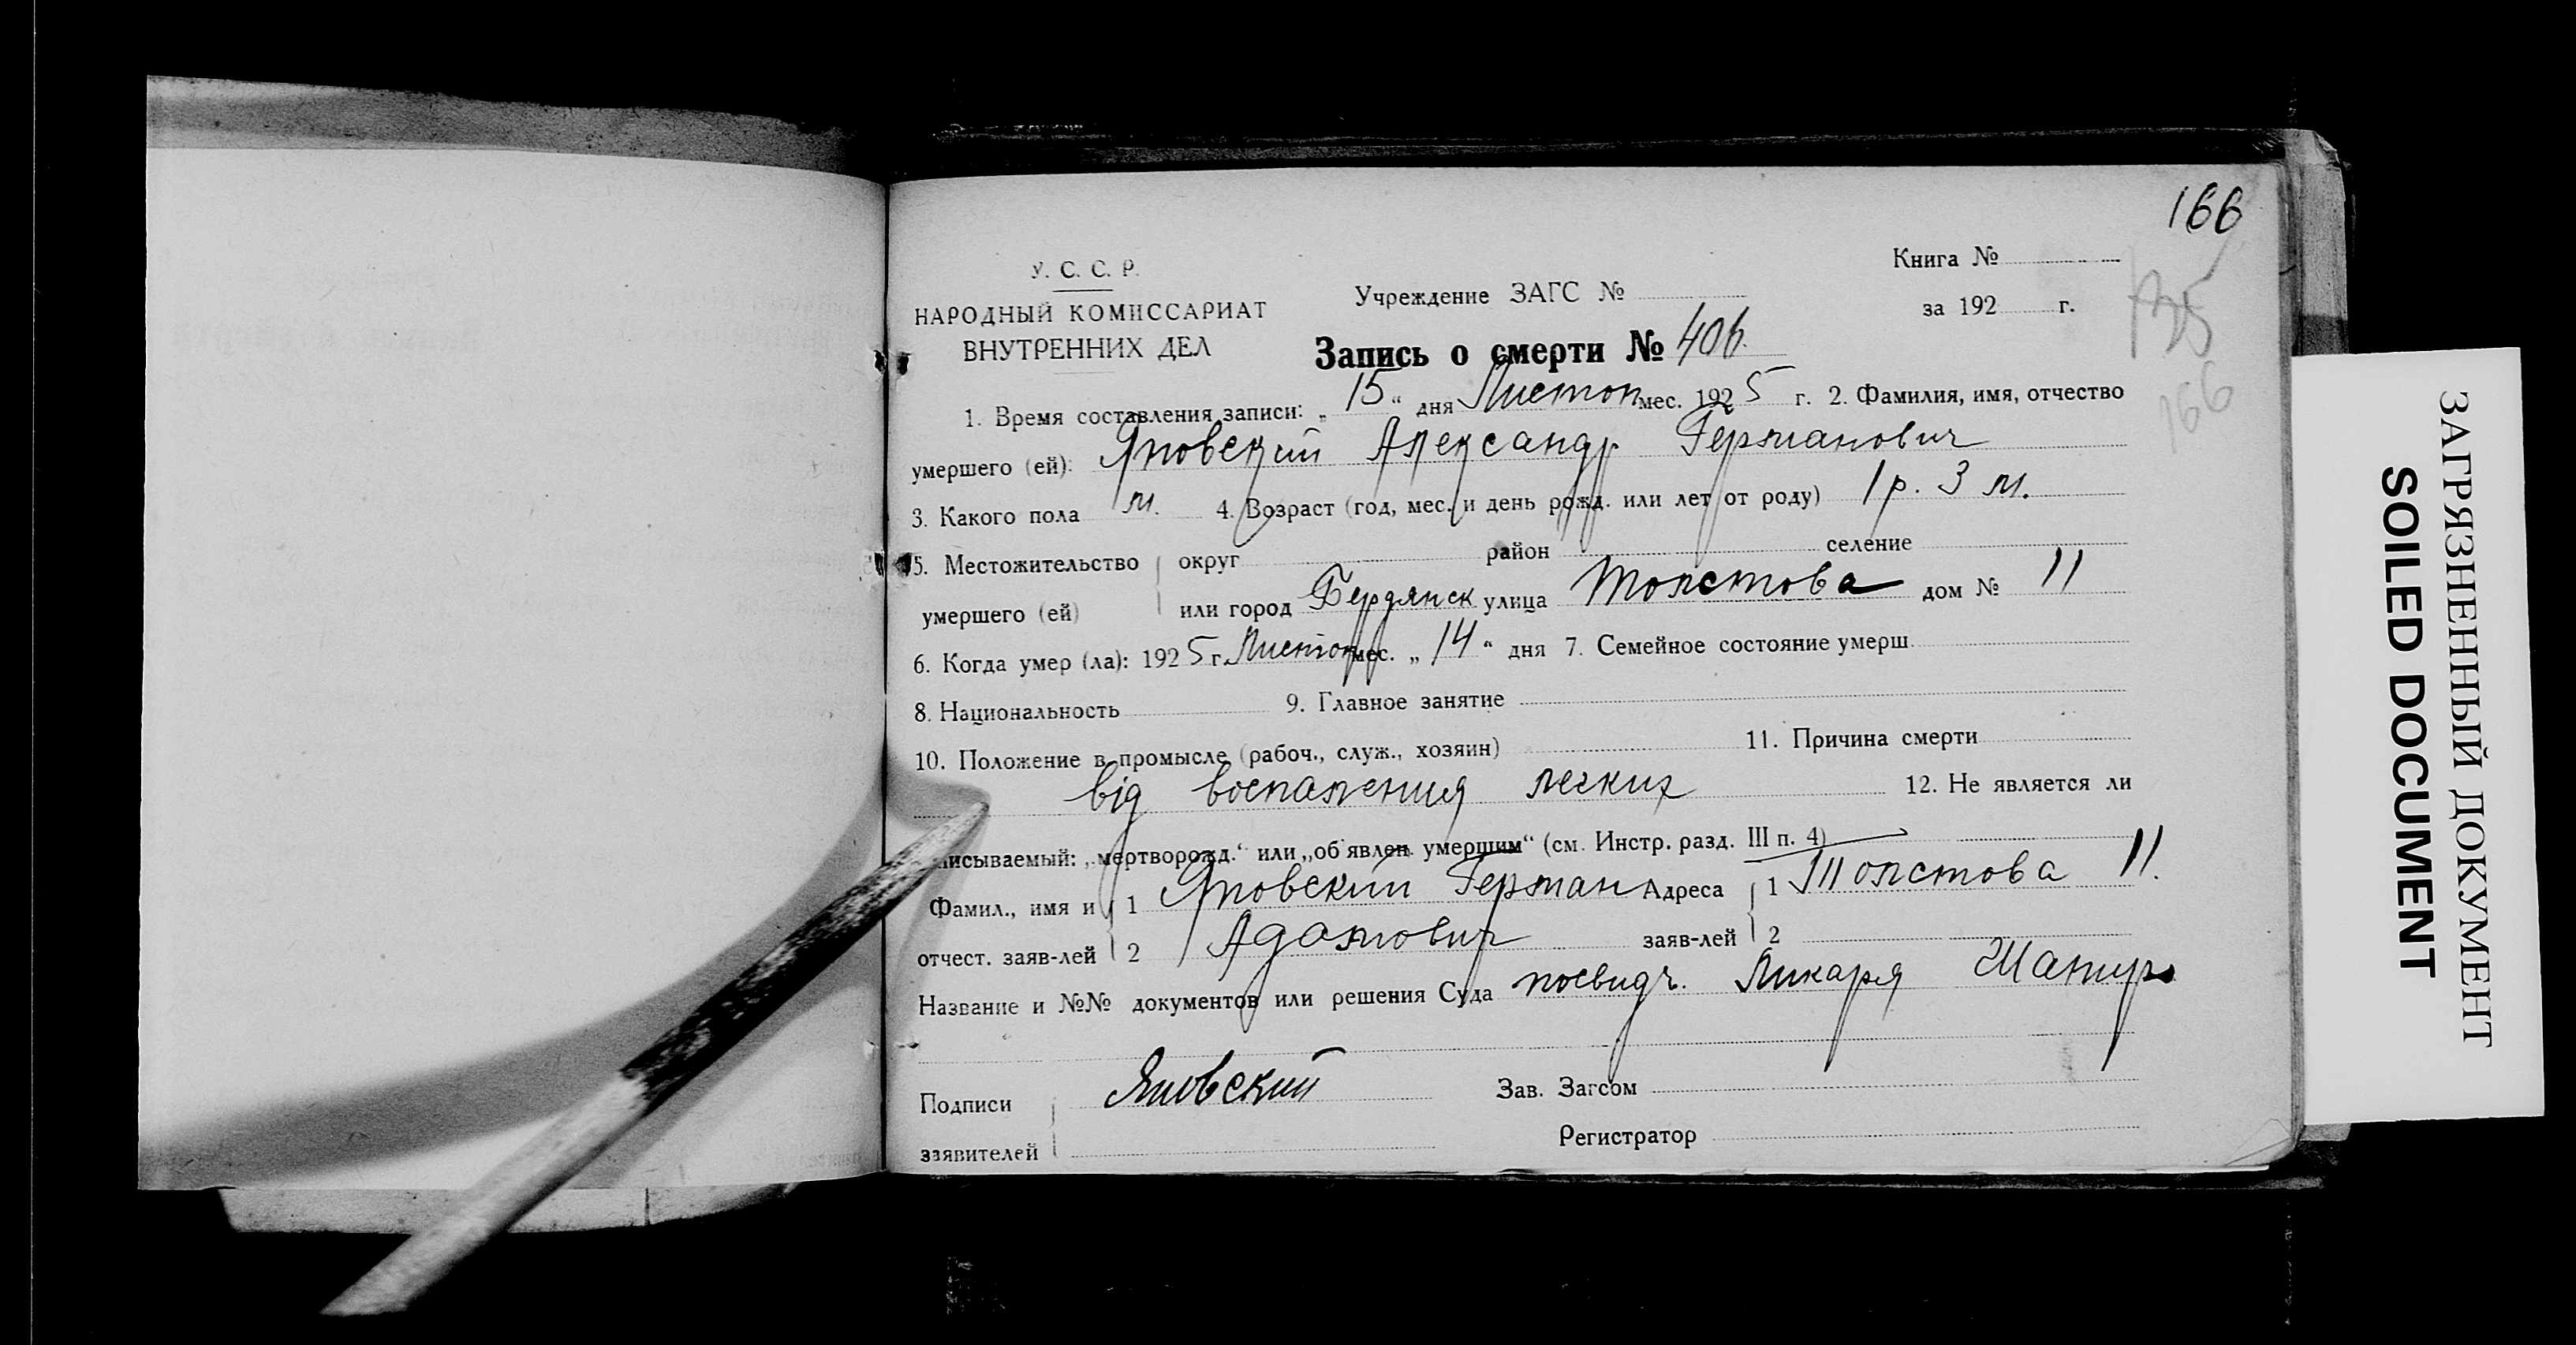 166
У. С. С. Р.
Книга №
135
НАРОДНЫЙ КОМИССАРИАТ
ВНУТРЕННИХ ДЕЛ
Учреждение ЗАГС №
за 192 г.
Запись о смерти № 406.
166
1. Время составления записи: „ 15 “ дня Листоп мес. 192 5 г. 2. Фамилия, имя, отчество
умершего (ей): Яновский Александр Германович
3. Какого пола м. 4. Возраст (год, мес. и день рожд. или лет от роду) 1 р. 3 м.
5. Местожительство округ район селение
умершего (ей) или город Бердянск улица Толстова дом № 11
6. Когда умер (ла): 192 5 г. Листоп мес. „ 14 “ дня 7. Семейное состояние умерш.
8. Национальность 9. Главное занятие
10. Положение в промысле (рабоч., служ., хозяин) 11. Причина смерти
від воспаления легких 12. Не является ли
писываемый: „мертворожд.“ или „об'явлен. умершим“ (см. Инстр. разд. III п. 4)
Фамил., имя и 1 Яновский Герман Адреса 1 Толстова 11.
отчест. заяв-лей 2 Адамович заяв-лей 2
Название и №№ документов или решения Суда посвидч. Ликаря
Подписи Яновский Зав. Загсом
заявителей Регистратор
ЗАГРЯЗНЕННЫЙ ДОКУМЕНТ
SOILED DOCUMENT